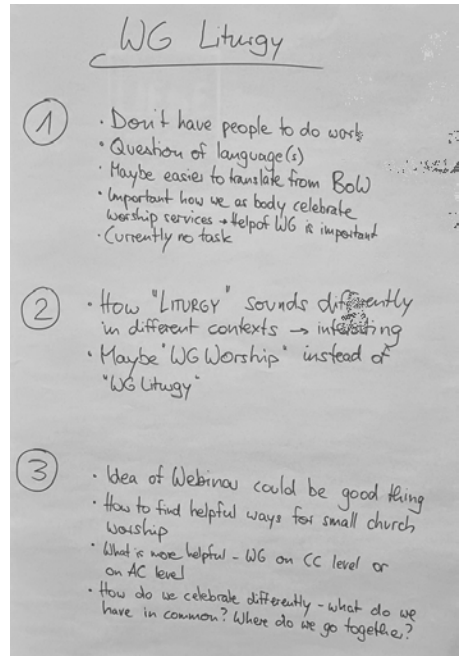 WG Liturgy
1
• Don't have people to do work
• Question of language(s)
• Maybe easier to translate from BoW
• Important how we as body celebrate
worship services → Help of WG is important
• Currently no task
2
• How "LITURGY" sounds differently
in different contexts → interesting
• Maybe "WG Worship" instead of
"WG Liturgy"
3
• Idea of Webinar could be good thing
• How to find helpful ways for small church
worship
• What is more helpful - WG on CC level or
on AC level
• How do we celebrate differently - what do we
have in common? Where do we go together?